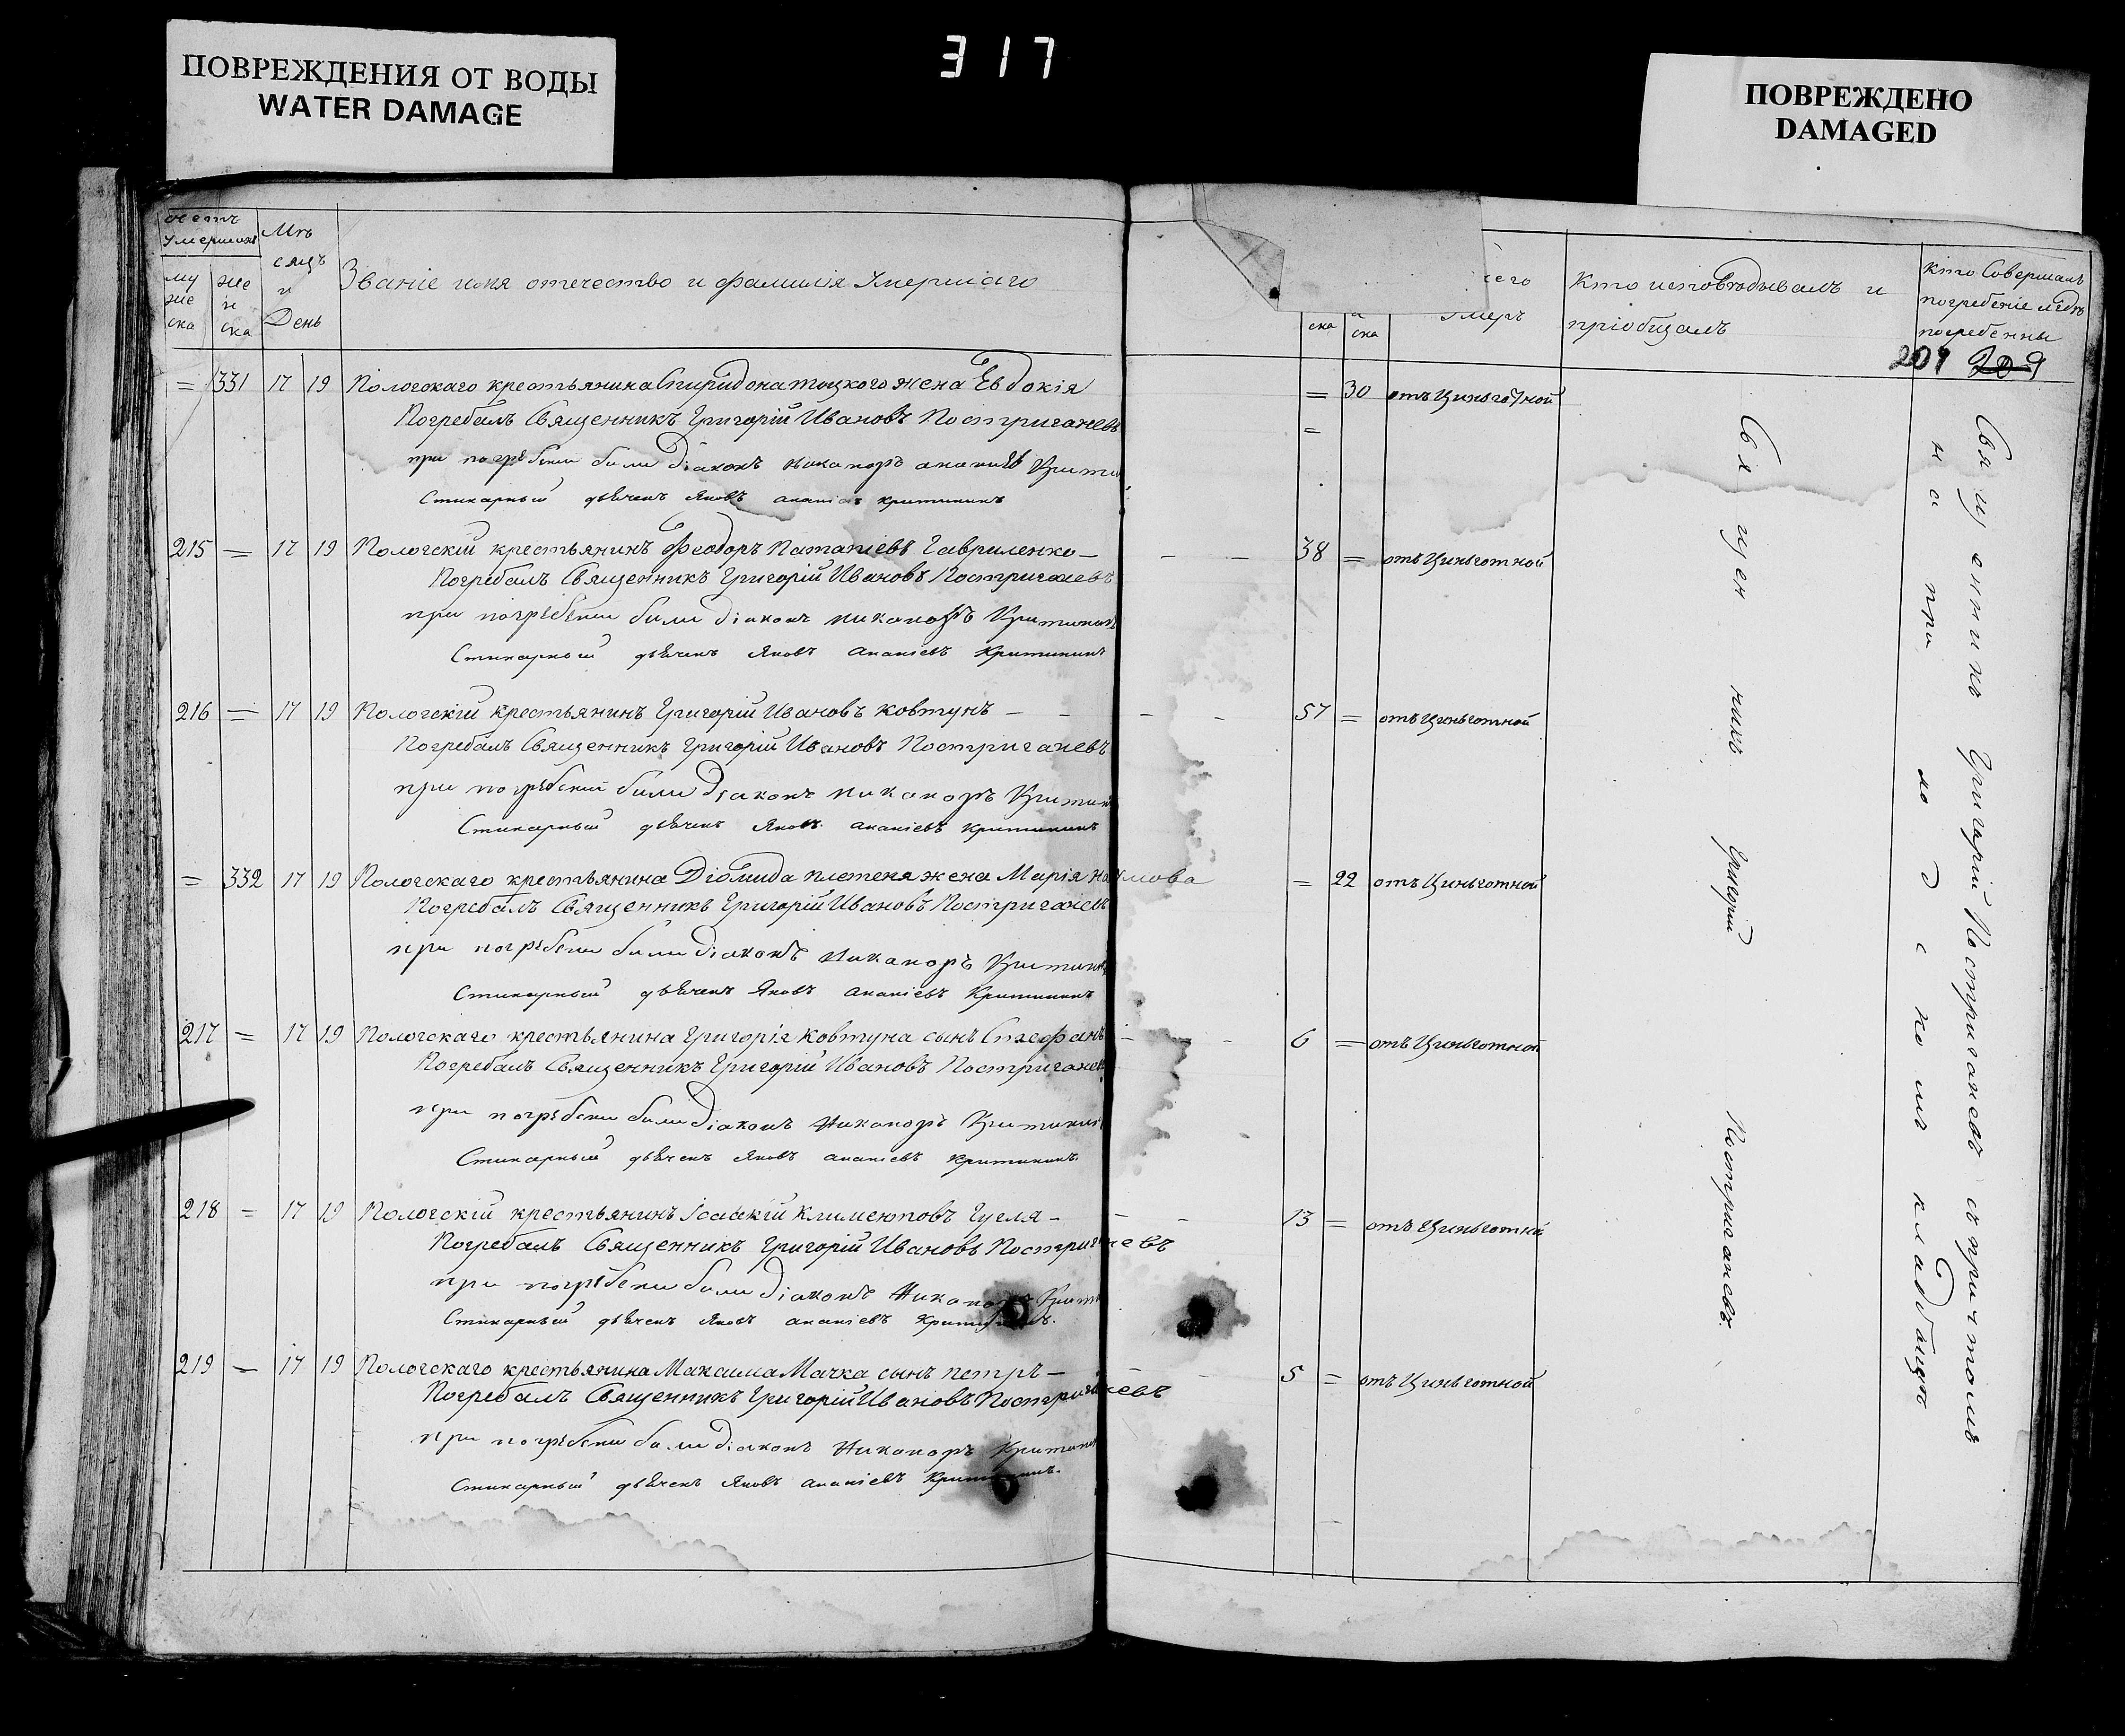 ПОВРЕЖДЕНИЯ ОТ ВОДЫ
WATER DAMAGE
317
ПОВРЕЖДЕНО
DAMAGED
Умершихъ
му
же
ска
же
н
ска
Мѣ
сяцъ
и
День
Званіе имя отечество и фамилія Умершаго
его
Умеръ
ска
ска
Кто исповѣдывалъ и
пріобщалъ
Кто Совершалъ
погребеніе и гдѣ
погребенны
209 209
= 331 17 19 Пологскаго крестьянина Спиридона тоцкого жена Евдокія = 30 отъ Цынготной
Погребалъ Священникъ Григорій Ивановъ Постриганевъ =
при погрѣбени били Діаконъ никаноръ ананіевъ Крити
Стихарный дьячекъ Яковъ ананіевъ критининъ
215 = 17 19 Пологскій крестьянинъ Феодоръ Потапіевъ Гавриленко — — — 38 = отъ Цынготной
Погребалъ Священникъ Григорій Ивановъ Постриганевъ
при погрѣбени били діаконъ никаноръ Критининъ
Стихарный дьячекъ Яковъ ананіевъ Критининъ
216 = 17 19 Пологскій крестьянинъ Григорій Ивановъ Ковтунъ — — — — 57 = отъ Цынготной
Погребалъ Священникъ Григорій Ивановъ Постриганевъ
при погрѣбени били Діаконъ никаноръ Критин
Стихарный дьячекъ Яковъ ананіевъ критининъ
= 332 17 19 Пологскаго крестьянина Діомида плетеня жена Марія Наумова = 22 отъ Цынготной
Погребалъ Священникъ Григорій Ивановъ Постриганевъ
при погрѣбени били діаконъ Никаноръ Критинин
Стихарный дьячекъ Яковъ ананіевъ Критининъ
217 = 17 19 Пологскаго крестьянина Григорія Ковтуна сынъ Стефанъ — — 6 = отъ Цынготной
Погребалъ Священникъ Григорій Ивановъ Постриганевъ
при погрѣбени били Діаконъ Никаноръ Критинин
Стихарный дьячекъ Яковъ ананіевъ критининъ.
218 = 17 19 Пологскій крестьянинъ Ісаакій Климентовъ Гугля — — — 13 = отъ Цынготной
Погребалъ Священникъ Григорій Ивановъ Постриганевъ
при погрѣбени били Діаконъ Никаноръ Крити
Стихарный дьячекъ Яковъ ананіевъ Критининъ.
219 = 17 19 Пологскаго крестьянина Максима Мачка сынъ петръ — — — 5 = отъ Цынготной
Погребалъ Священникъ Григорій Ивановъ Постриганевъ
при погрѣбени били діаконъ Никаноръ Критинин
Стихарный дьячекъ Яковъ ананіевъ Критининъ.
Священникъ Григорій Постриганевъ.
Священникъ Григорій Постриганевъ съ причтомъ
на при кладбищѣ